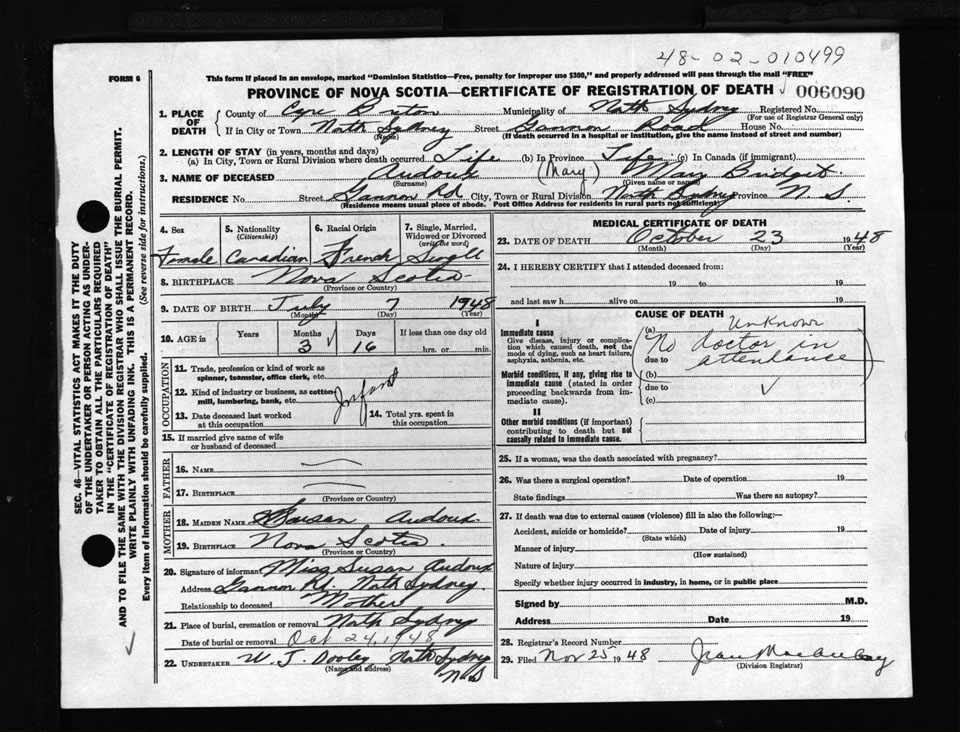 48-02-010499
FORM 6
This form if placed in an envelope, marked "Dominion Statistics—Free, penalty for improper use $300," and properly addressed will pass through the mail "FREE"
PROVINCE OF NOVA SCOTIA—CERTIFICATE OF REGISTRATION OF DEATH 006090
1. PLACE OF DEATH
County of Cape Breton Municipality of North Sydney Registered No.
(For use of Registrar General only)
If in City or Town North Sydney Street Gannon Road House No.
(Name) (If death occurred in a hospital or institution, give the name instead of street and number)
2. LENGTH OF STAY (in years, months and days)
(a) In City, Town or Rural Division where death occurred Life (b) In Province Life (c) In Canada (if immigrant)
3. NAME OF DECEASED Audoux (Mary) Mary Bridget
(Surname) (Given name or names)
RESIDENCE No. Street Gannon Rd City, Town or Rural Division North Sydney Province N. S.
(Residence means usual place of abode. Post Office Address for residents in rural parts not sufficient)
4. Sex 5. Nationality (Citizenship) 6. Racial Origin 7. Single, Married, Widowed or Divorced (write the word)
Female Canadian French Single
8. BIRTHPLACE Nova Scotia
(Province or Country)
9. DATE OF BIRTH July 7 1948
(Month) (Day) (Year)
10. AGE in Years Months Days If less than one day old
3 16 hrs. or min.
OCCUPATION
11. Trade, profession or kind of work as spinner, teamster, office clerk, etc.
12. Kind of industry or business, as cotton-mill, lumbering, bank, etc.
Infant
13. Date deceased last worked at this occupation 14. Total yrs. spent in this occupation
15. If married give name of wife or husband of deceased
FATHER
16. NAME
17. BIRTHPLACE
(Province or Country)
MOTHER
18. MAIDEN NAME Susan Audoux
19. BIRTHPLACE Nova Scotia
(Province or Country)
20. Signature of informant Miss Susan Audoux
Address Gannon Rd. North Sydney
Relationship to deceased Mother
21. Place of burial, cremation or removal North Sydney
Date of burial or removal Oct 24, 1948
22. UNDERTAKER W. J. Dooley North Sydney
(Name and address) N S
MEDICAL CERTIFICATE OF DEATH
23. DATE OF DEATH October 23 1948
(Month) (Day) (Year)
24. I HEREBY CERTIFY that I attended deceased from:
19 to 19
and last saw h alive on 19
CAUSE OF DEATH
I
Immediate cause
Give disease, injury or complication which caused death, not the mode of dying, such as heart failure, asphyxia, asthenia, etc.
(a) Unknown
No doctor in
due to attendance
Morbid conditions, if any, giving rise to immediate cause (stated in order proceeding backwards from immediate cause).
(b)
due to
(c)
II
Other morbid conditions (if important) contributing to death but not causally related to immediate cause.
25. If a woman, was the death associated with pregnancy?
26. Was there a surgical operation? Date of operation 19
State findings Was there an autopsy?
27. If death was due to external causes (violence) fill in also the following:—
Accident, suicide or homicide? Date of injury 19
(State which)
Manner of injury
(How sustained)
Nature of injury
Specify whether injury occurred in industry, in home, or in public place
Signed by M.D.
Address Date 19
28. Registrar's Record Number
29. Filed Nov 25 1948 Jean
(Division Registrar)
SEC. 46—VITAL STATISTICS ACT MAKES IT THE DUTY
OF THE UNDERTAKER OR PERSON ACTING AS UNDER-
TAKER TO OBTAIN ALL THE PARTICULARS REQUIRED
IN THE "CERTIFICATE OF REGISTRATION OF DEATH"
AND TO FILE THE SAME WITH THE DIVISION REGISTRAR WHO SHALL ISSUE THE BURIAL PERMIT.
WRITE PLAINLY WITH UNFADING INK. THIS IS A PERMANENT RECORD.
Every item of Information should be carefully supplied. (See reverse side for instructions.)